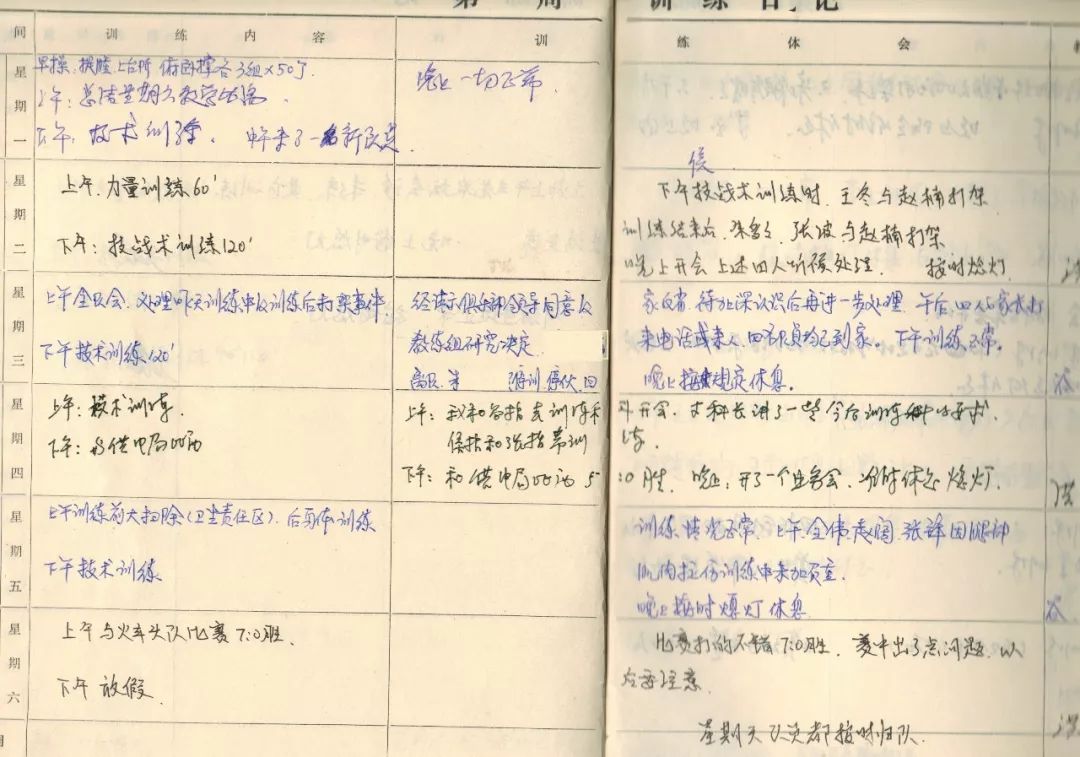 第 周 训 练 日 记
间 训 练 内 容 训 练 体 会
星期一
早操:提膝上台阶 俯卧撑各3组×50个
上午:总结星期六教学比赛.
下午:技术训练. 中午来了一名新队员.
晚上一切正常.
星期二
上午:力量训练60′
下午:技战术训练120′
下午技战术训练时,王冬与赵楠打架
训练结束后, 张波与赵楠打架
晚上开会上述四人听候处理. 按时熄灯
星期三
上午全队会.处理昨天训练中及训练后打架事件
下午技术训练120′
经请示俱乐部领导同意及
教练组研究决定.
停训 停伙.回
家反省.待加深认识后再进一步处理.午后四位家长打
来电话或来人.四名队员均已到家。下午训练正常。
晚上按规定休息。
星期四
上午:技术训练.
下午:与供电局比赛
上午: 开会.
科长讲了一些今后训练 要求.
下午:和供电局比赛 5:0胜. 晚上:开了一个 会,准时休息 熄灯.
星期五
上午训练前大扫除(卫生责任区).后身体训练
下午技术训练
训练情况正常.上午 张 因腿部
肌肉拉伤训练中未
晚上按时熄灯休息
星期六
上午与火车头队比赛7:0胜.
下午 放假.
比赛打的不错7:0胜. 赛中出了点问题.以
后要注意.
星期天队员都按时归队.